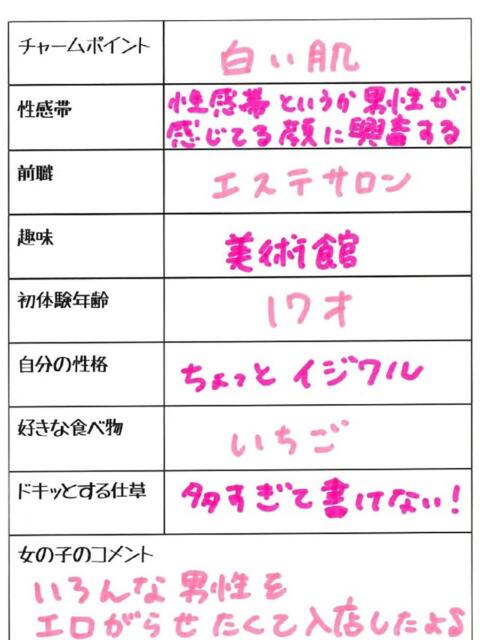 チャームポイント 白い肌
性感帯 性感帯というか男性が
感じてる顔に興奮する
前職 エステサロン
趣味 美術館
初体験年齢 17才
自分の性格 ちょっとイジワル
好きな食べ物 いちご
ドキッとする仕草 多すぎて書けない!
女の子のコメント
いろんな男性を
エロがらせたくて入店したよ♪